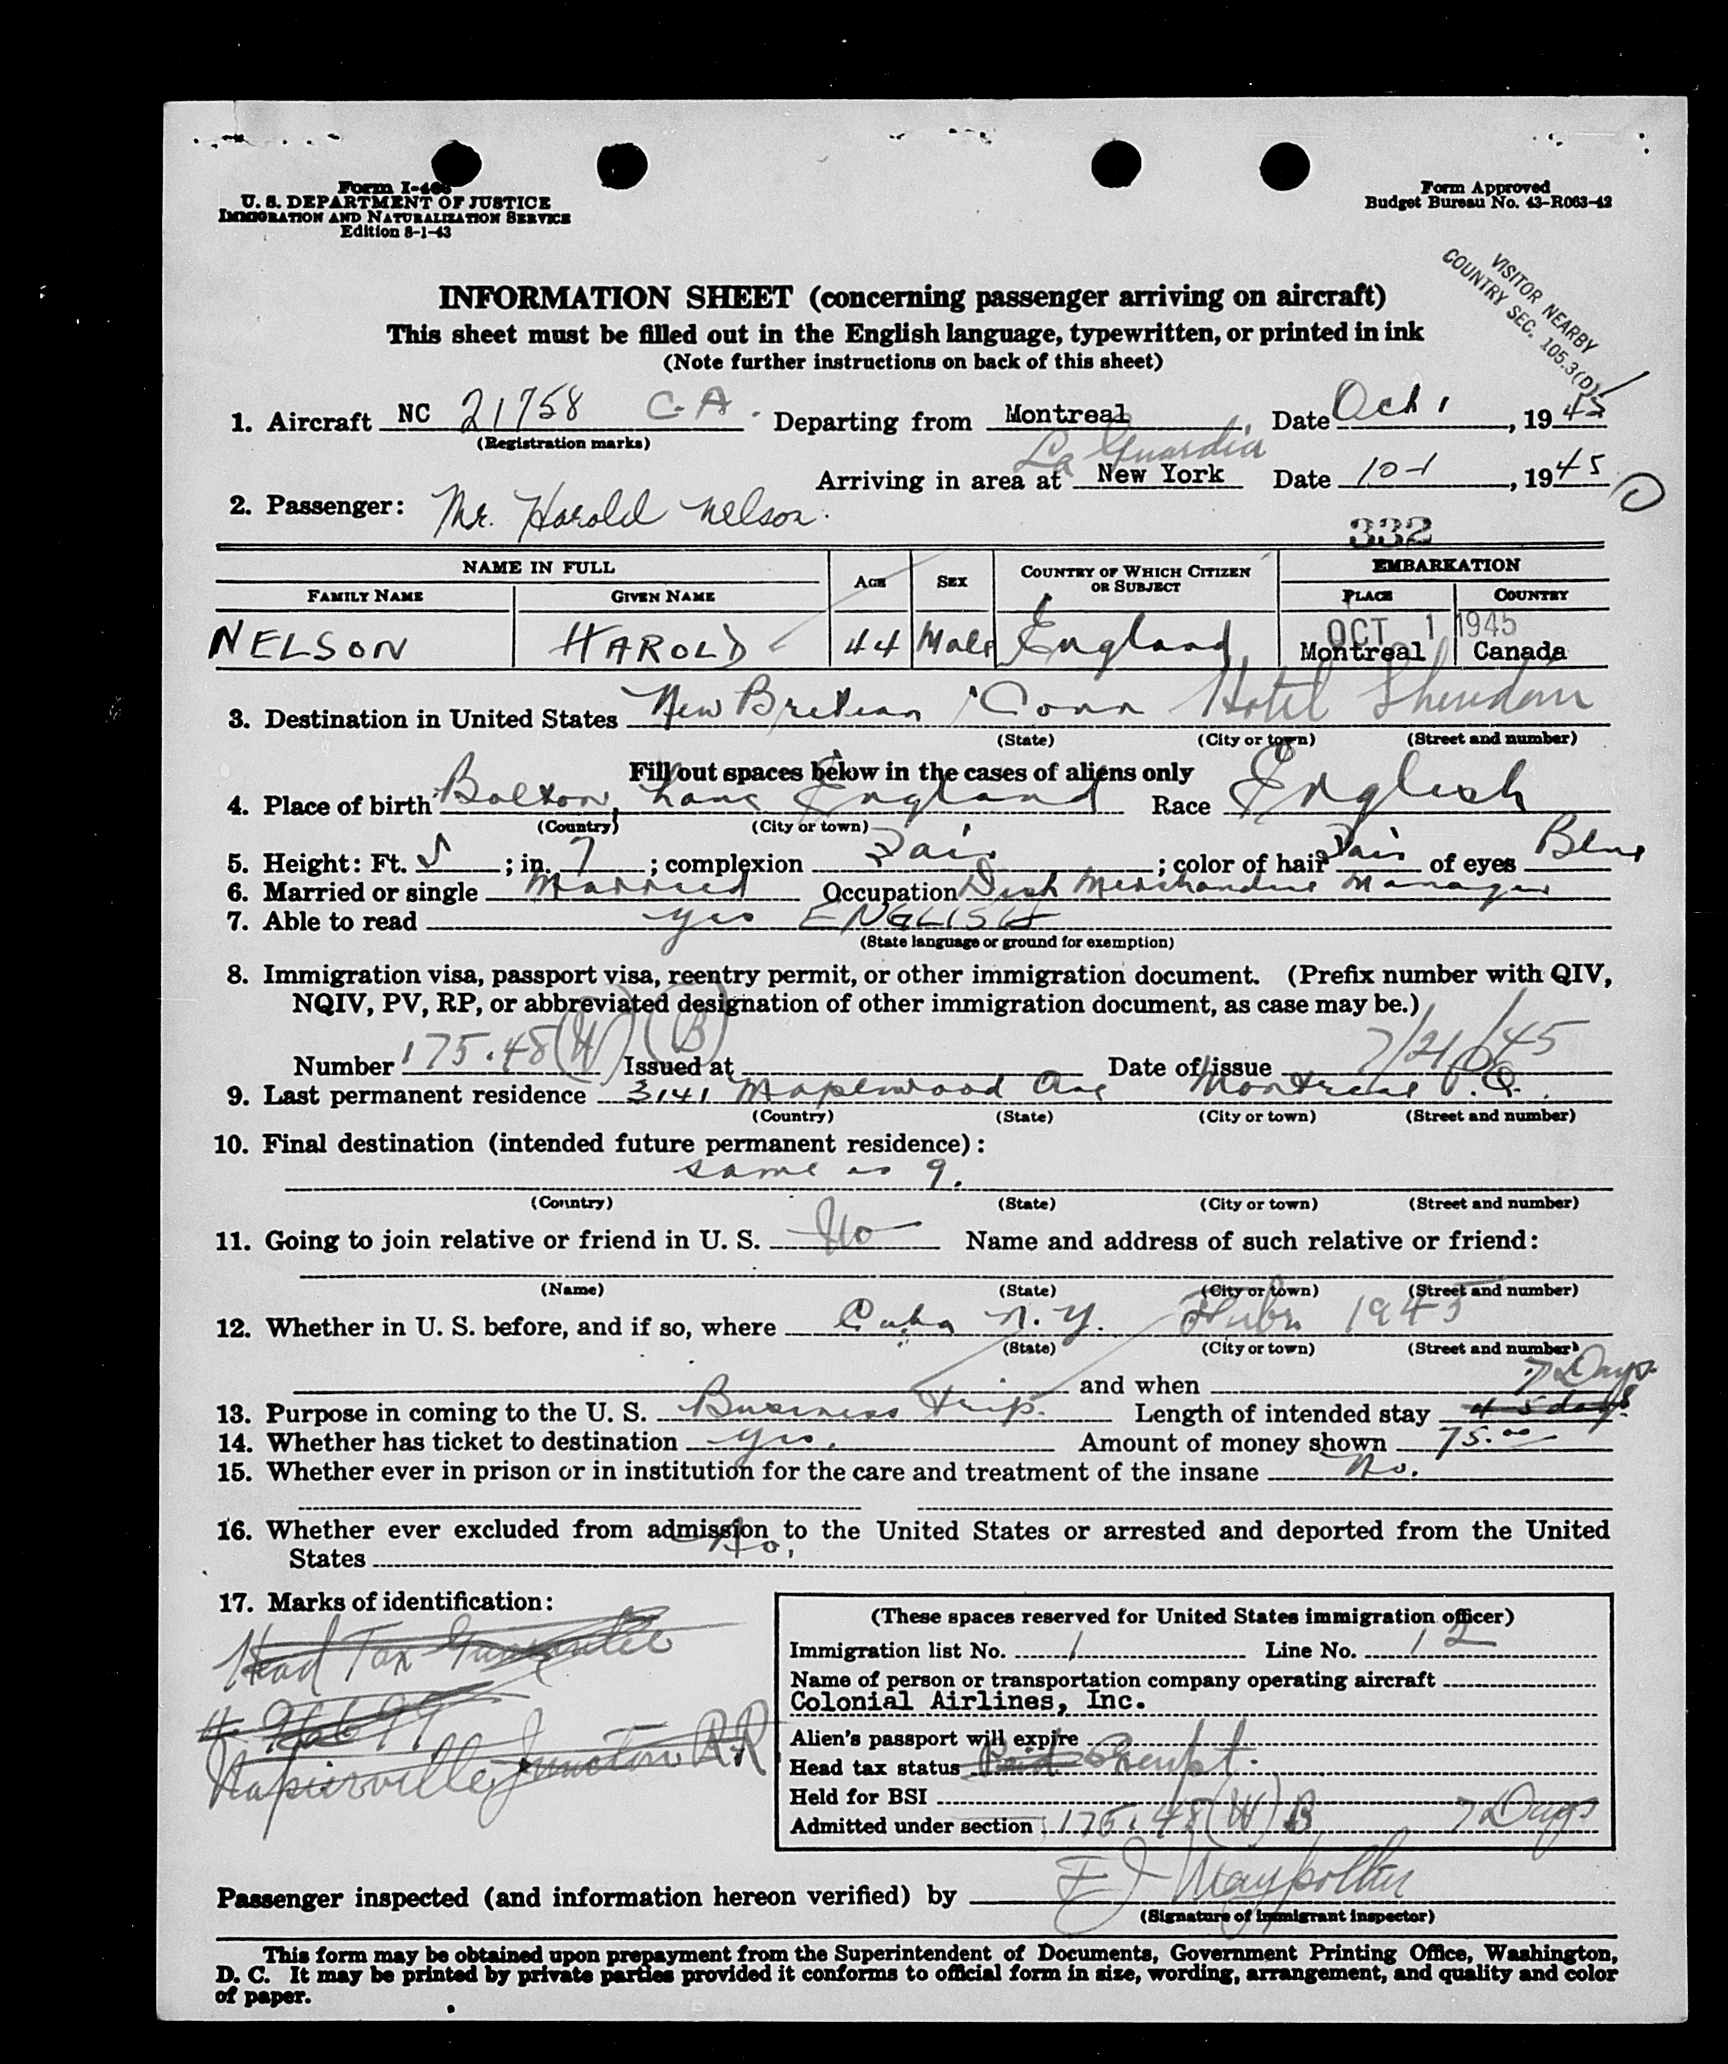 Form I-466
U. S. DEPARTMENT OF JUSTICE
IMMIGRATION AND NATURALIZATION SERVICE
Edition 8-1-43
Form Approved
Budget Bureau No. 43-R063-42
VISITOR NEARBY
COUNTRY SEC. 105.3(D)
INFORMATION SHEET (concerning passenger arriving on aircraft)
This sheet must be filled out in the English language, typewritten, or printed in ink
(Note further instructions on back of this sheet)
1. Aircraft NC 21758 C.A. Departing from Montreal, Date Oct 1, 1945
(Registration marks)
La Guardia
Arriving in area at New York Date 10-1, 1945
2. Passenger: Mr. Harold Nelson.
332
NAME IN FULL AGE SEX COUNTRY OF WHICH CITIZEN OR SUBJECT EMBARKATION
FAMILY NAME GIVEN NAME PLACE COUNTRY
OCT 1 1945
NELSON HAROLD 44 Male England Montreal Canada
3. Destination in United States New Britian Conn Hotel
(State) (City or town) (Street and number)
Fill out spaces below in the cases of aliens only
4. Place of birth Bolton, Lanc England Race English
(Country) (City or town)
5. Height: Ft. 5; in. 7; complexion Fair; color of hair Fair of eyes Blue
6. Married or single Married Occupation Dist Merchandise Manager
7. Able to read yes ENGLISH
(State language or ground for exemption)
8. Immigration visa, passport visa, reentry permit, or other immigration document. (Prefix number with QIV,
NQIV, PV, RP, or abbreviated designation of other immigration document, as case may be.)
Number 175.48 (B) Issued at Date of issue 7/21/45
9. Last permanent residence 3141 Maplewood Ave Montreal P.Q.
(Country) (State) (City or town) (Street and number)
10. Final destination (intended future permanent residence):
same as 9.
(Country) (State) (City or town) (Street and number)
11. Going to join relative or friend in U. S. No Name and address of such relative or friend:
(Name) (State) (City or town) (Street and number)
12. Whether in U. S. before, and if so, where Cuba N.Y. 1945
(State) (City or town) (Street and number)
and when 7 Days
13. Purpose in coming to the U. S. Business trip. Length of intended stay 4 5 days
14. Whether has ticket to destination yes. Amount of money shown 75.00
15. Whether ever in prison or in institution for the care and treatment of the insane No.
16. Whether ever excluded from admission to the United States or arrested and deported from the United
States No.
17. Marks of identification:
Head Tax Guarantee
Napierville Junction RR
(These spaces reserved for United States immigration officer)
Immigration list No. 1 Line No. 12
Name of person or transportation company operating aircraft
Colonial Airlines, Inc.
Alien's passport will expire
Head tax status Paid Exempt.
Held for BSI
Admitted under section 175.48 B 7 Days
Passenger inspected (and information hereon verified) by
(Signature of immigrant inspector)
This form may be obtained upon prepayment from the Superintendent of Documents, Government Printing Office, Washington,
D. C. It may be printed by private parties provided it conforms to official form in size, wording, arrangement, and quality and color
of paper.